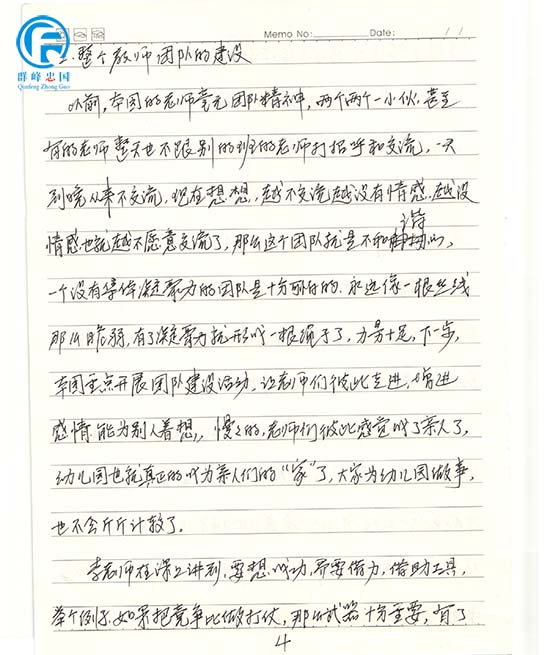 Memo No: Date: / /
群峰忠国
Qunfeng Zhong Guo
二.整个教师团队的建设
以前,本园的老师毫无团队精神,两个两个一小伙,甚至
有的老师整天也不跟别的班的老师打招呼和交流,一天
到晚从来不交流,现在想想,越不交流越没有情感,越没
情感也就越不愿意交流了,那么这个团队就是不和谐的,
一个没有集体凝聚力的团队是十分可怕的.永远像一根丝线
那么脆弱,有了凝聚力就形成一根绳子了,力量十足,下一步,
本园重点开展团队建设活动,让老师们彼此走进,增进
感情.能为别人着想,慢慢的,老师们彼此感觉成了亲人了,
幼儿园也就真正的成为亲人们的“家”了,大家为幼儿园做事,
也不会斤斤计较了.
李老师在课上讲到,要想成功,需要借力,借助工具,
举个例子,如果把竞争比做打仗,那么武器十分重要,有了
4